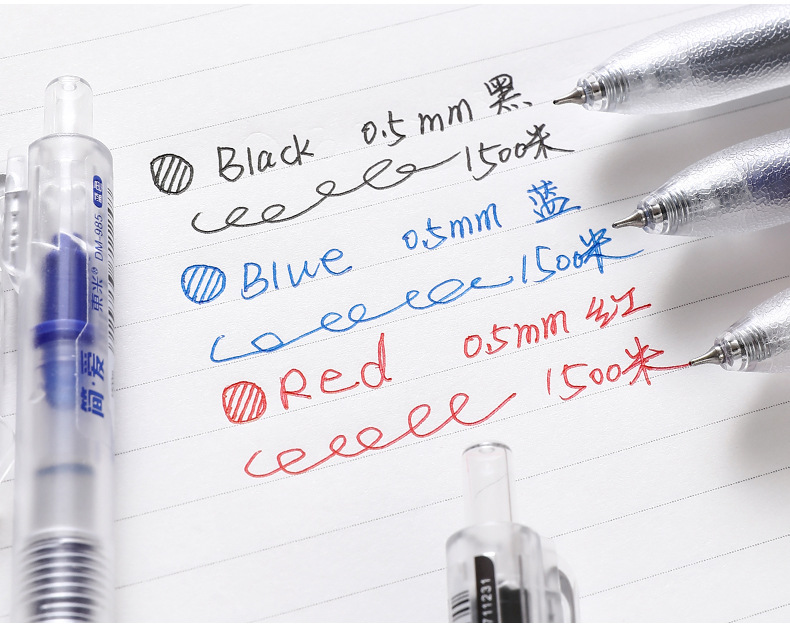 Black 0.5mm 黑
1500米
Blue 0.5mm 蓝
1500米
Red 0.5mm 红
1500米
DM-985
简·爱
711231